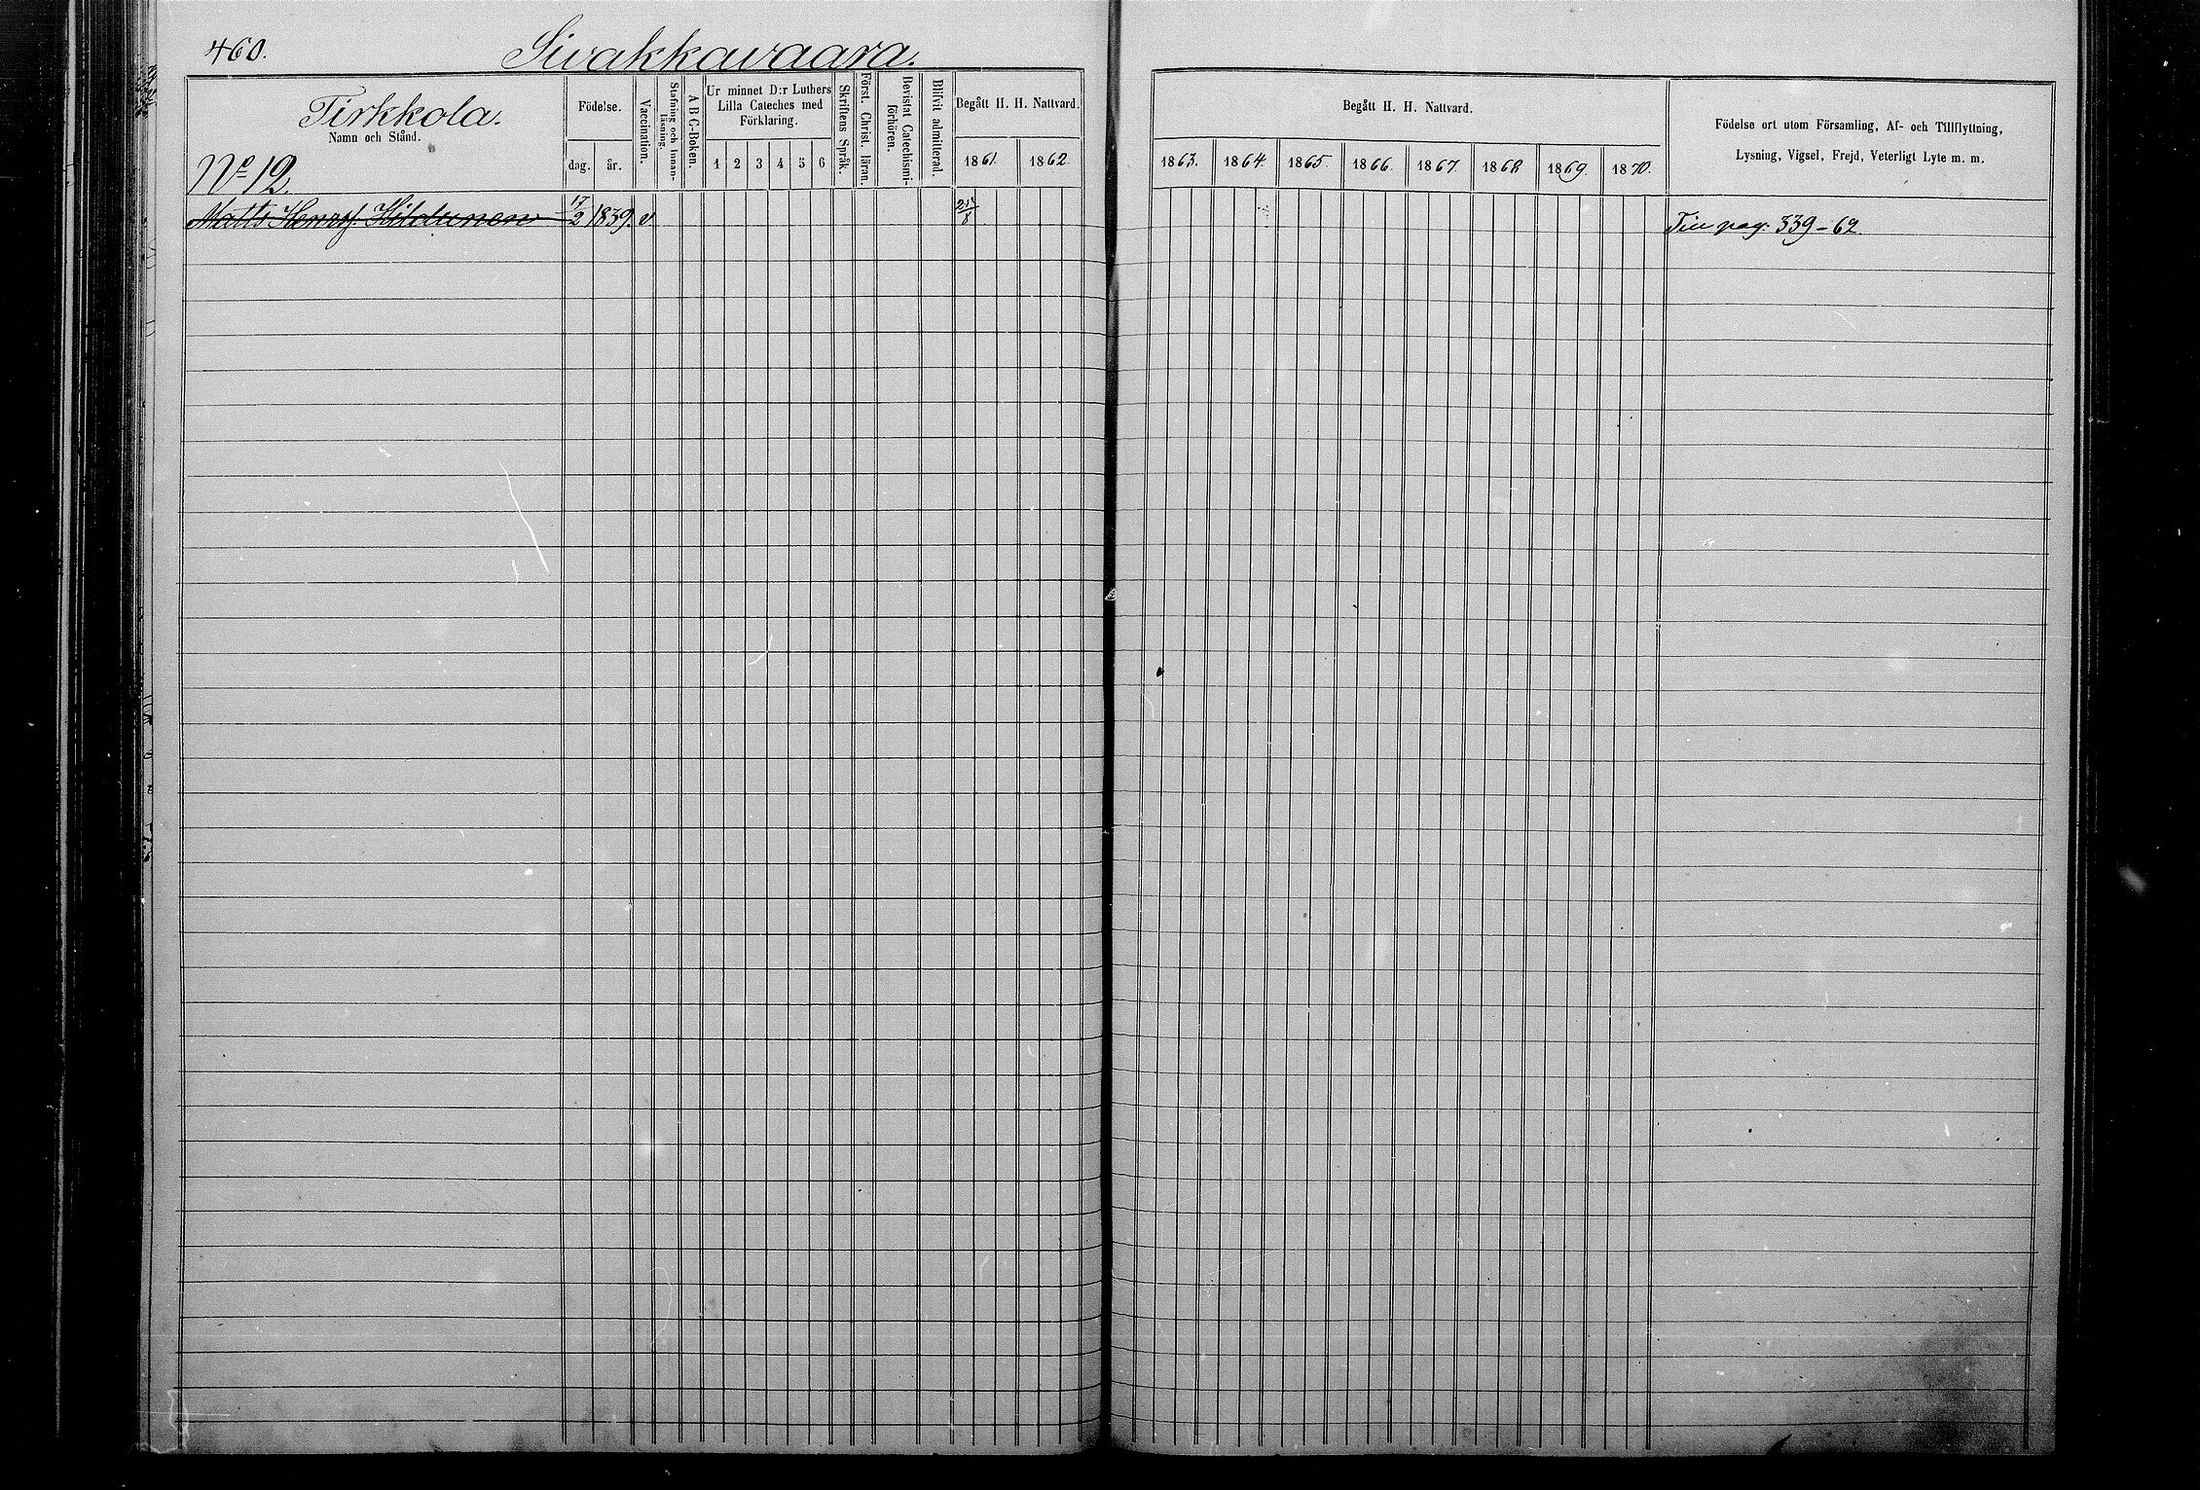 460. Sivakkavaara.
Tirkkola.
Namn och Stånd.
No 12.
Födelse.
dag. år.
Vaccination.
Stafning och Innan-
läsning.
A B C-Boken.
Ur minnet D:r Luthers
Lilla Cateches med
Förklaring.
1 2 3 4 5 6
Skriftens Språk.
Först. Christ. läran.
Bevistat Catechismi-
förhören.
Blifvit admitterad.
Begått H. H. Nattvard.
1861. 1862.
Begått H. H. Nattvard.
1863. 1864. 1865. 1866. 1867. 1868 1869. 1870.
Födelse ort utom Församling, Af- och Tillflyttning,
Lysning, Vigsel, Frejd, Veterligt Lyte m. m.
Matts Henrsf. 17/2 1839. v. Till pag: 339-62.